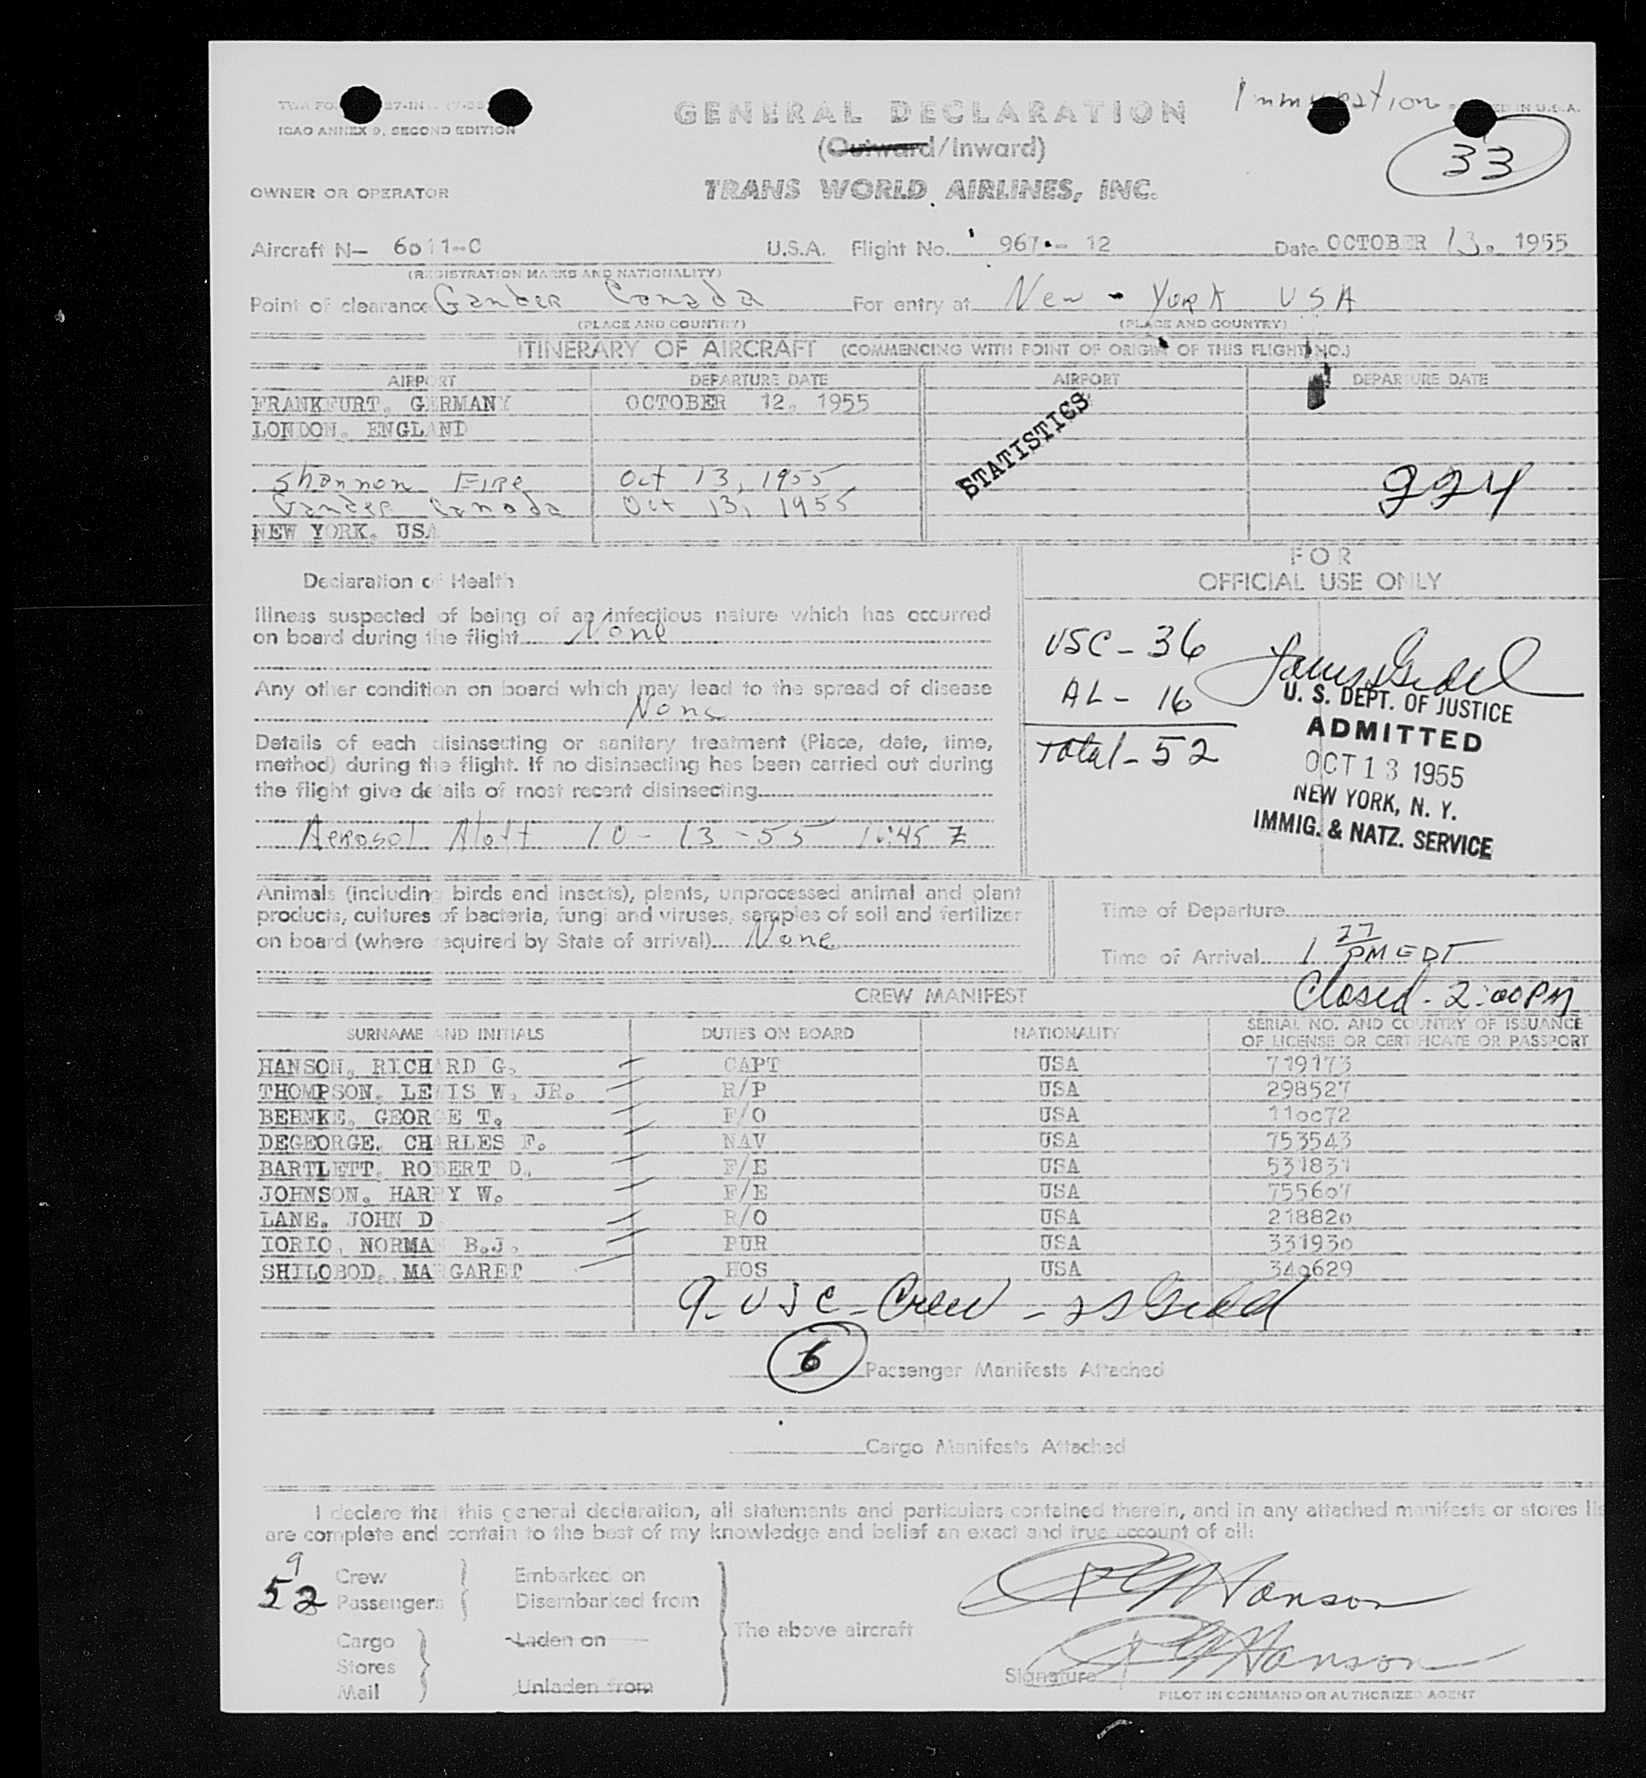 Immigration
ICAO ANNEX 9, SECOND EDITION
GENERAL DECLARATION
(Outward/Inward)
33
OWNER OR OPERATOR
TRANS WORLD AIRLINES, INC.
Aircraft N- 6011-C U.S.A. Flight No. 967-12 Date OCTOBER 13, 1955
(REGISTRATION MARKS AND NATIONALITY)
Point of clearance Gander Canada For entry at New - York USA
(PLACE AND COUNTRY) (PLACE AND COUNTRY)
ITINERARY OF AIRCRAFT (COMMENCING WITH POINT OF ORIGIN OF THIS FLIGHT NO.)
AIRPORT DEPARTURE DATE AIRPORT DEPARTURE DATE
FRANKFURT, GERMANY OCTOBER 12, 1955
LONDON, ENGLAND
STATISTICS
Shannon Eire Oct 13, 1955
224
Gander Canada Oct 13, 1955
NEW YORK, USA
FOR
OFFICIAL USE ONLY
Declaration of Health
Illness suspected of being of an infectious nature which has occurred
on board during the flight None
Any other condition on board which may lead to the spread of disease
None
Details of each disinsecting or sanitary treatment (Place, date, time,
method) during the flight. If no disinsecting has been carried out during
the flight give details of most recent disinsecting
Aerosol Aloft 10-13-55 16:45 Z
USC - 36
AL - 16
Total - 52
U. S. DEPT. OF JUSTICE
ADMITTED
OCT 13 1955
NEW YORK, N. Y.
IMMIG. & NATZ. SERVICE
Animals (including birds and insects), plants, unprocessed animal and plant
products, cultures of bacteria, fungi and viruses, samples of soil and fertilizer
on board (where required by State of arrival) None
Time of Departure
Time of Arrival 1 27 PM EDT
Closed - 2:00 PM
CREW MANIFEST
SURNAME AND INITIALS DUTIES ON BOARD NATIONALITY SERIAL NO. AND COUNTRY OF ISSUANCE
OF LICENSE OR CERTIFICATE OR PASSPORT
HANSON, RICHARD G. CAPT USA 719173
THOMPSON, LEWIS W. JR. R/P USA 298527
BEHNKE, GEORGE T. F/O USA 110072
DEGEORGE, CHARLES F. NAV USA 753543
BARTLETT, ROBERT D. F/E USA 531831
JOHNSON, HARRY W. F/E USA 755607
LANE, JOHN D R/O USA 218820
IORIO, NORMAN B.J. PUR USA 331930
SHILOBOD, MARGARET HOS USA 340629
9 - USC - Crew -
6 Passenger Manifests Attached
Cargo Manifests Attached
I declare that this general declaration, all statements and particulars contained therein, and in any attached manifests or stores lis
are complete and contain to the best of my knowledge and belief an exact and true account of all:
9 Crew Embarked on
52 Passengers Disembarked from
The above aircraft
Cargo Laden on
Stores
Mail Unladen from
R G Hanson
Signature R G Hanson
PILOT IN COMMAND OR AUTHORIZED AGENT